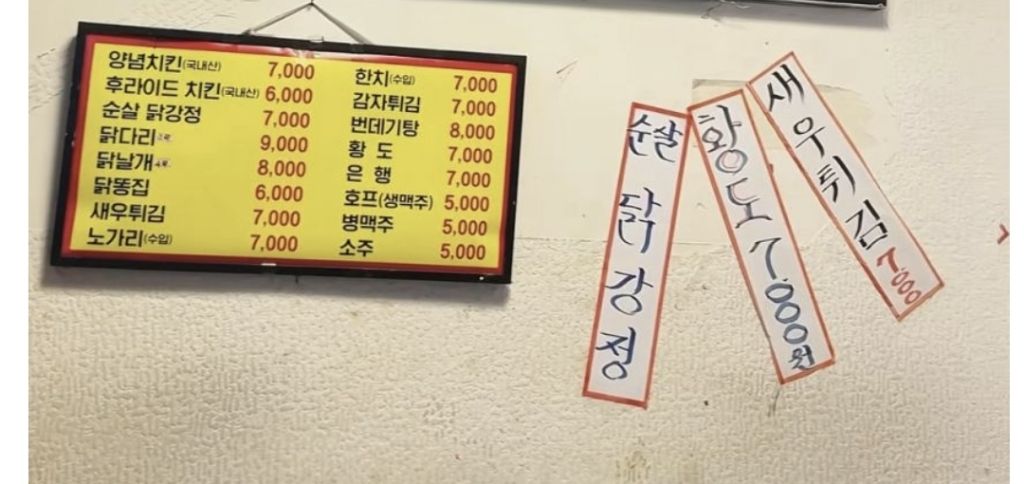 양념치킨(국내산) 7,000
후라이드 치킨(국내산) 6,000
순살 닭강정 7,000
닭다리 9,000
닭날개 8,000
닭똥집 6,000
새우튀김 7,000
노가리(수입) 7,000
한치(수입) 7,000
감자튀김 7,000
번데기탕 8,000
황 도 7,000
은 행 7,000
호프(생맥주) 5,000
병맥주 5,000
소주 5,000
순살 닭강정
황도 7.000원
새우튀김 7.000